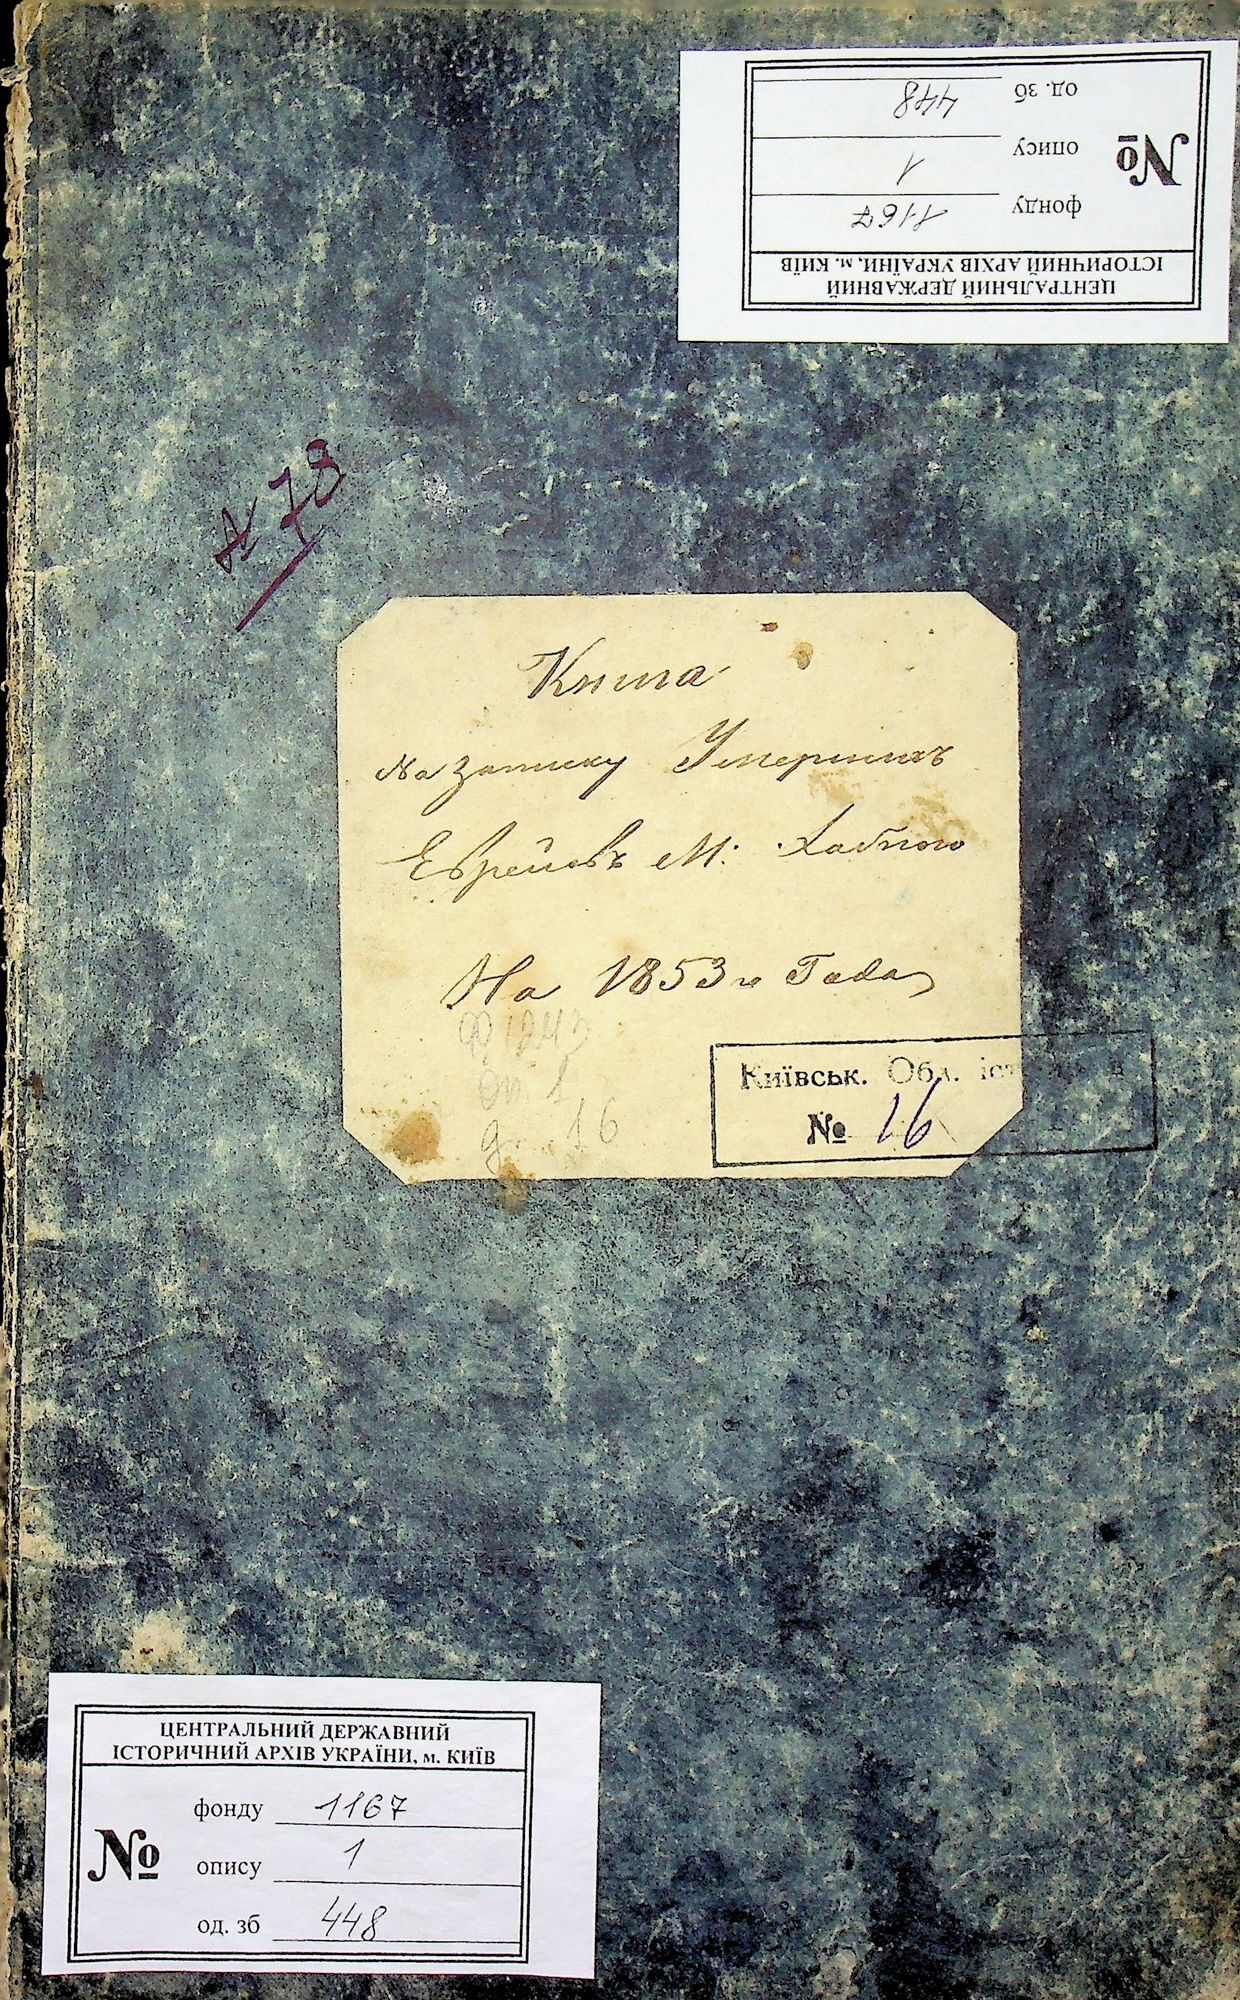 од. зб 448
опису 1
№
фонду 1167
ЦЕНТРАЛЬНИЙ ДЕРЖАВНИЙ
ІСТОРИЧНИЙ АРХІВ УКРАЇНИ, м. КИЇВ
78
Книга
На записку Умершихъ
Евреевъ М: Хабного
На 1853й Года
оп. 1
д. 16
Київськ. Обл. іст
№ 16
ЦЕНТРАЛЬНИЙ ДЕРЖАВНИЙ
ІСТОРИЧНИЙ АРХІВ УКРАЇНИ, м. КИЇВ
фонду 1167
№
опису 1
од. зб 448